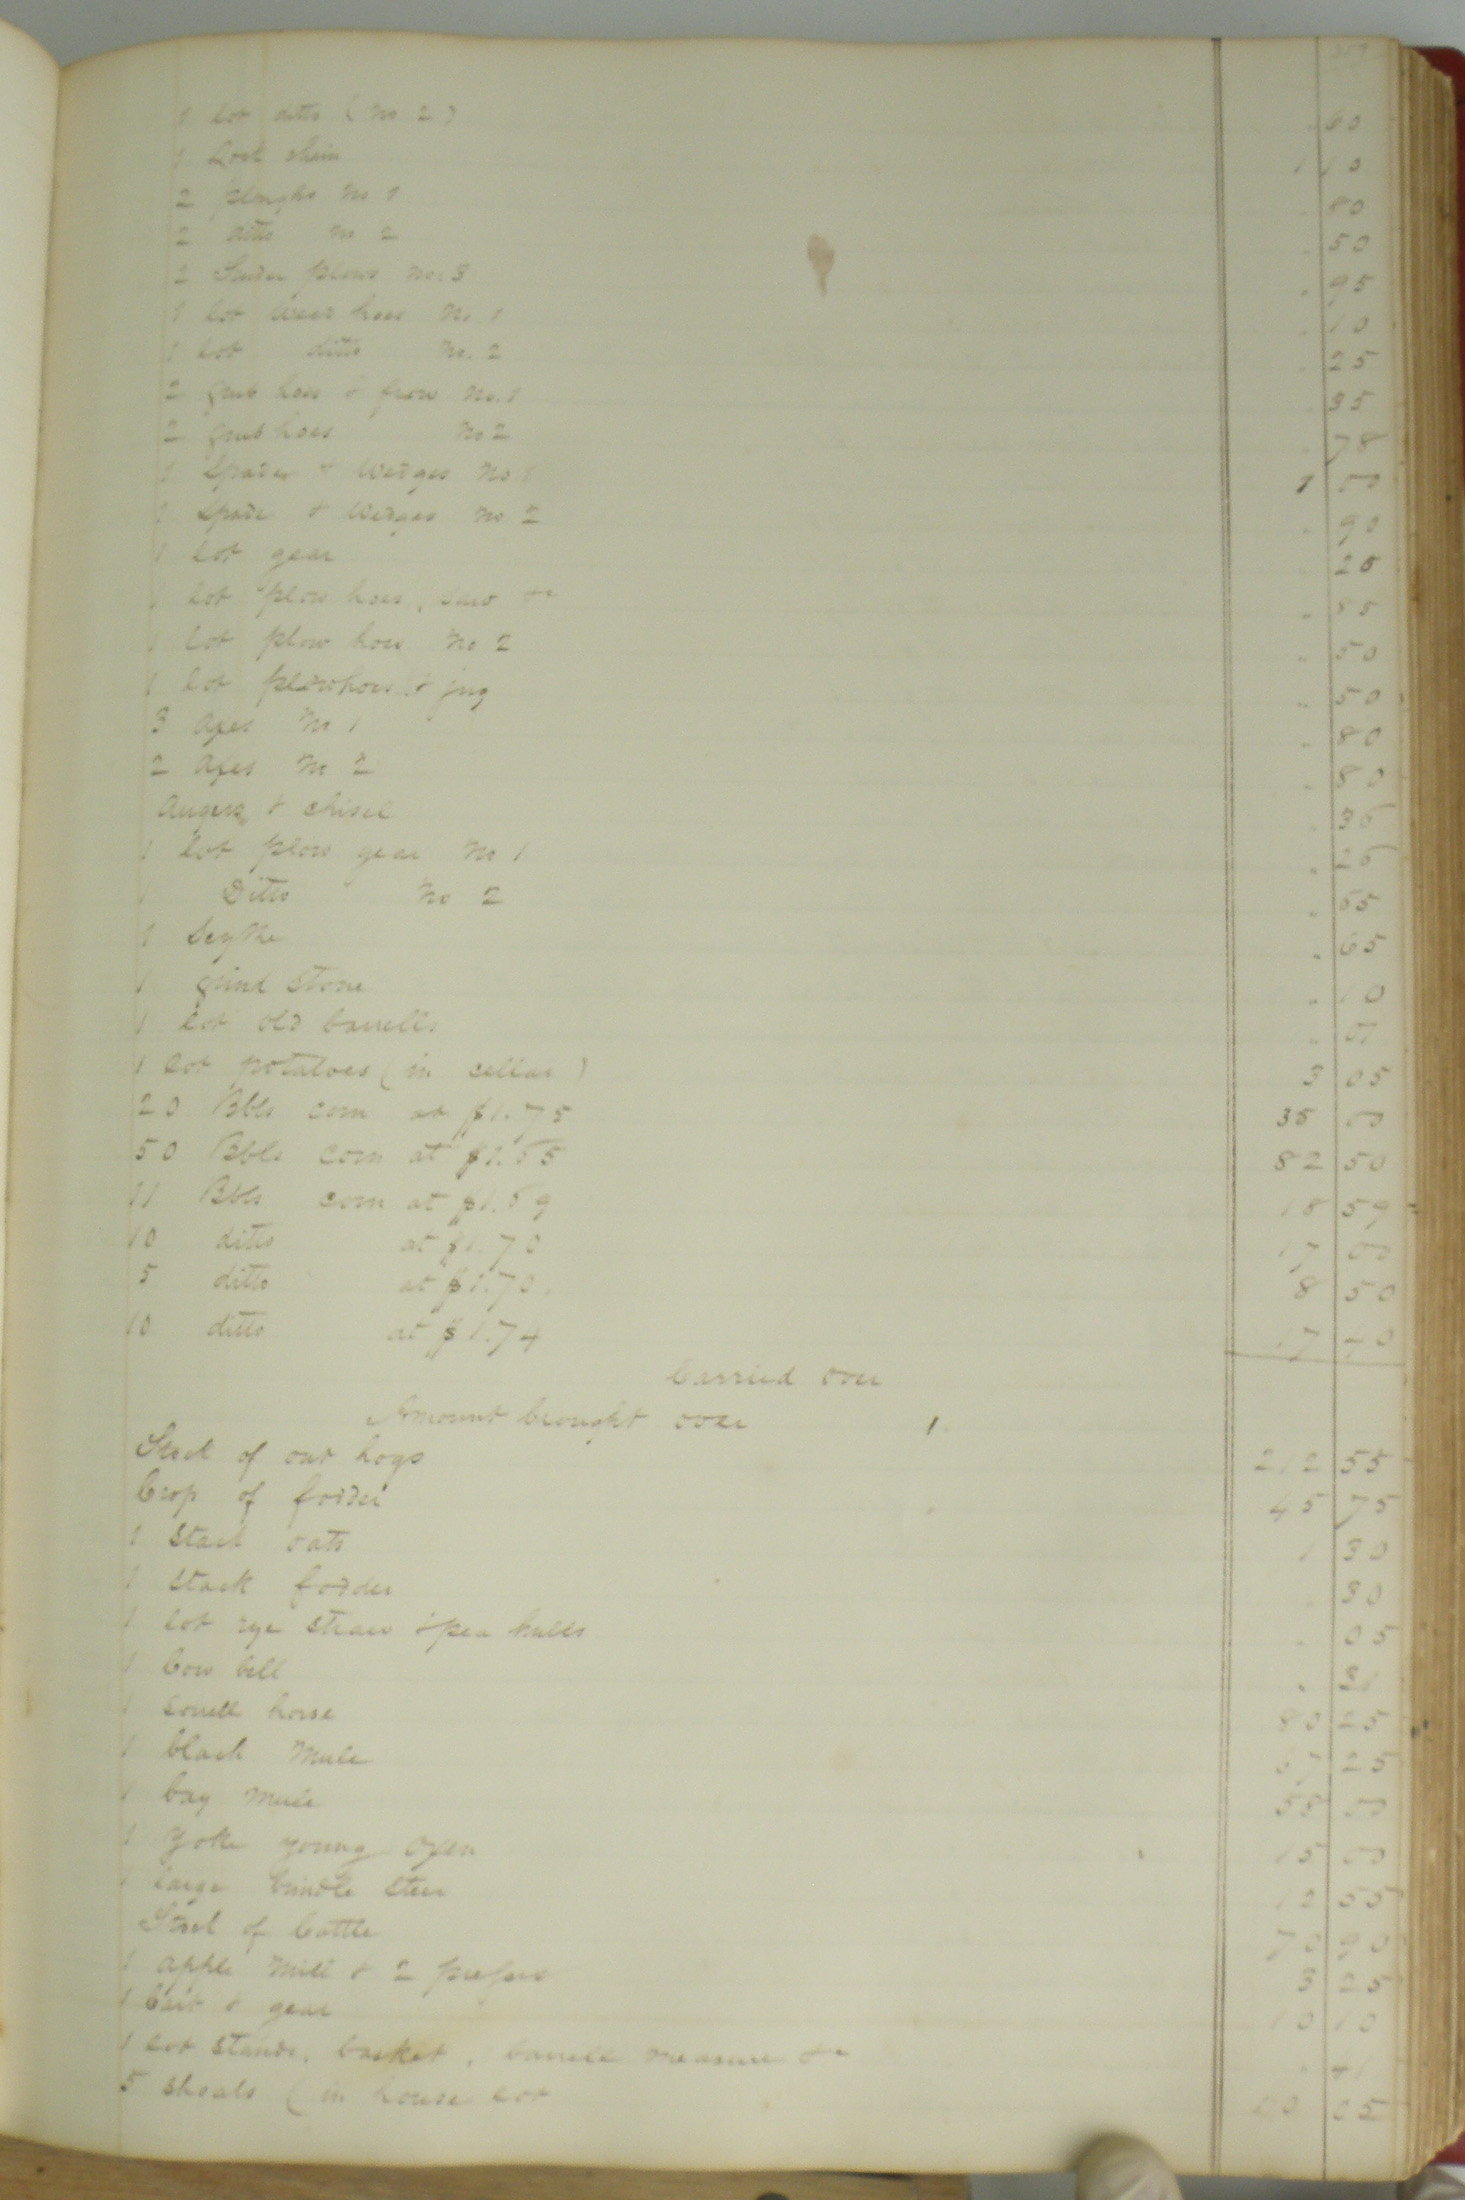 1 lot ditto (No 2) .60
1 Lock chain 1 10
2 ploughs No 1 . 80
2 ditto No 2 . 50
2 plows No. 3 . 95
1 lot weed hoes No. 1 . 10
1 lot ditto No. 2 . 25
2 grub hoes & frow No. 1 . 35
2 grub hoes No 2 . 78
1 Spade & Wedges No 1 1 00
1 Spade & Wedges No 2 . 90
1 lot gear . 25
1 lot plow hoes, saw &c .
1 lot plow hoes No 2 . 50
1 lot plowhoes & jug . 50
3 axes No 1 . 80
2 axes No 2 . 80
Augers & chisel . 36
1 lot plow gear No 1 .
1 Ditto No 2 . 65
1 Scythe . 65
1 grind stone . 10
1 lot old barrells .
1 lot potatoes (in cellar) 3 05
20 Bbls corn at $1.75 35 00
50 Bbls corn at $1.65 82 50
11 Bbls corn at $1.69 18 59
10 ditto at $1.70 17 00
5 ditto at $1.70. 8 50
10 ditto at $1.74 17 40
Carried over
Amount brought over 1.
Stock of out hogs 212 55
Crop of fodder 45 75
1 stack oats 1 30
1 stack fodder . 30
1 lot rye straw & pea hulls . 05
1 Cow bell . 31
1 sorrell horse 80 25
1 black Mule 67 25
1 bay mule 58 00
1 yoke young oxen 15 00
1 large brindle steer 12 55
Stock of Cattle 70 90
1 apple mill & 2 presses 3 25
1 Cart & gear 10 10
1 lot stands, basket, barrell measure &c . 41
5 shoats (in house lot 05